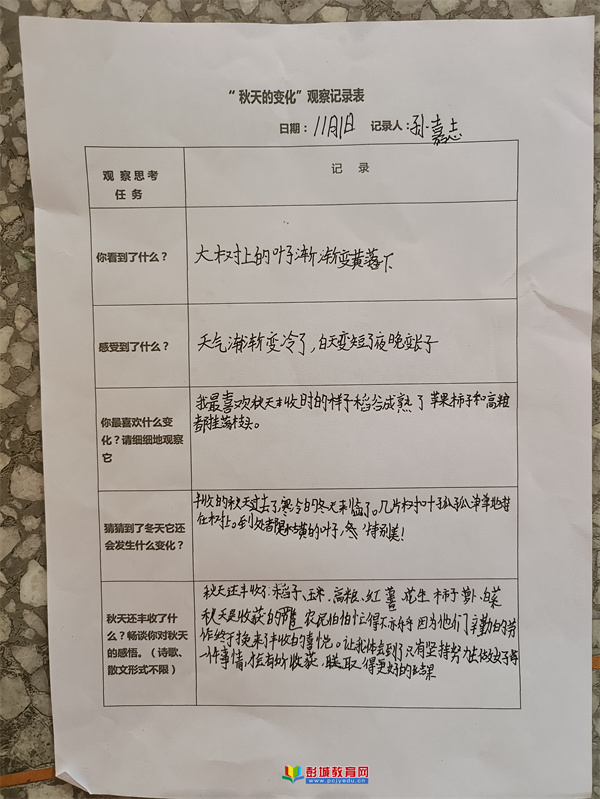 “秋天的变化”观察记录表
日期：11月1日 记录人：孙嘉志
观察思考
任务
记 录
你看到了什么？
大树上的叶子渐渐变黄落下
感受到了什么？
天气渐渐变冷了，白天变短了夜晚变长了
你最喜欢什么变
化？请细细地观察
它
我最喜欢秋天丰收时的样子稻谷成熟了苹果柿子和高粱
都挂满枝头。
猜猜到了冬天它还
会发生什么变化？
丰收的秋天过去了，寒冷的冬天来临了。几片树叶孤孤单单地挂
在树上。到处都是枯黄的叶子，冬 特别美！
秋天还丰收了什
么？畅谈你对秋天
的感悟。（诗歌、
散文形式不限）
秋天还丰收了：稻子、玉米、高粱、红薯、花生、柿子、萝卜、白菜
秋天是收获的季，农民伯伯忙得不亦乎因为他们辛勤的劳
作终于换来了丰收的喜悦。让我体会到了只有坚持努力去做好每
一件事情，才会有所收获，取得更好的结果
彭城教育网
www.pcjyedu.cn